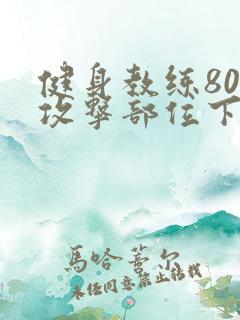 健身教练80
攻擊部位下
馬哈蒼尔
未任同意禁止转载